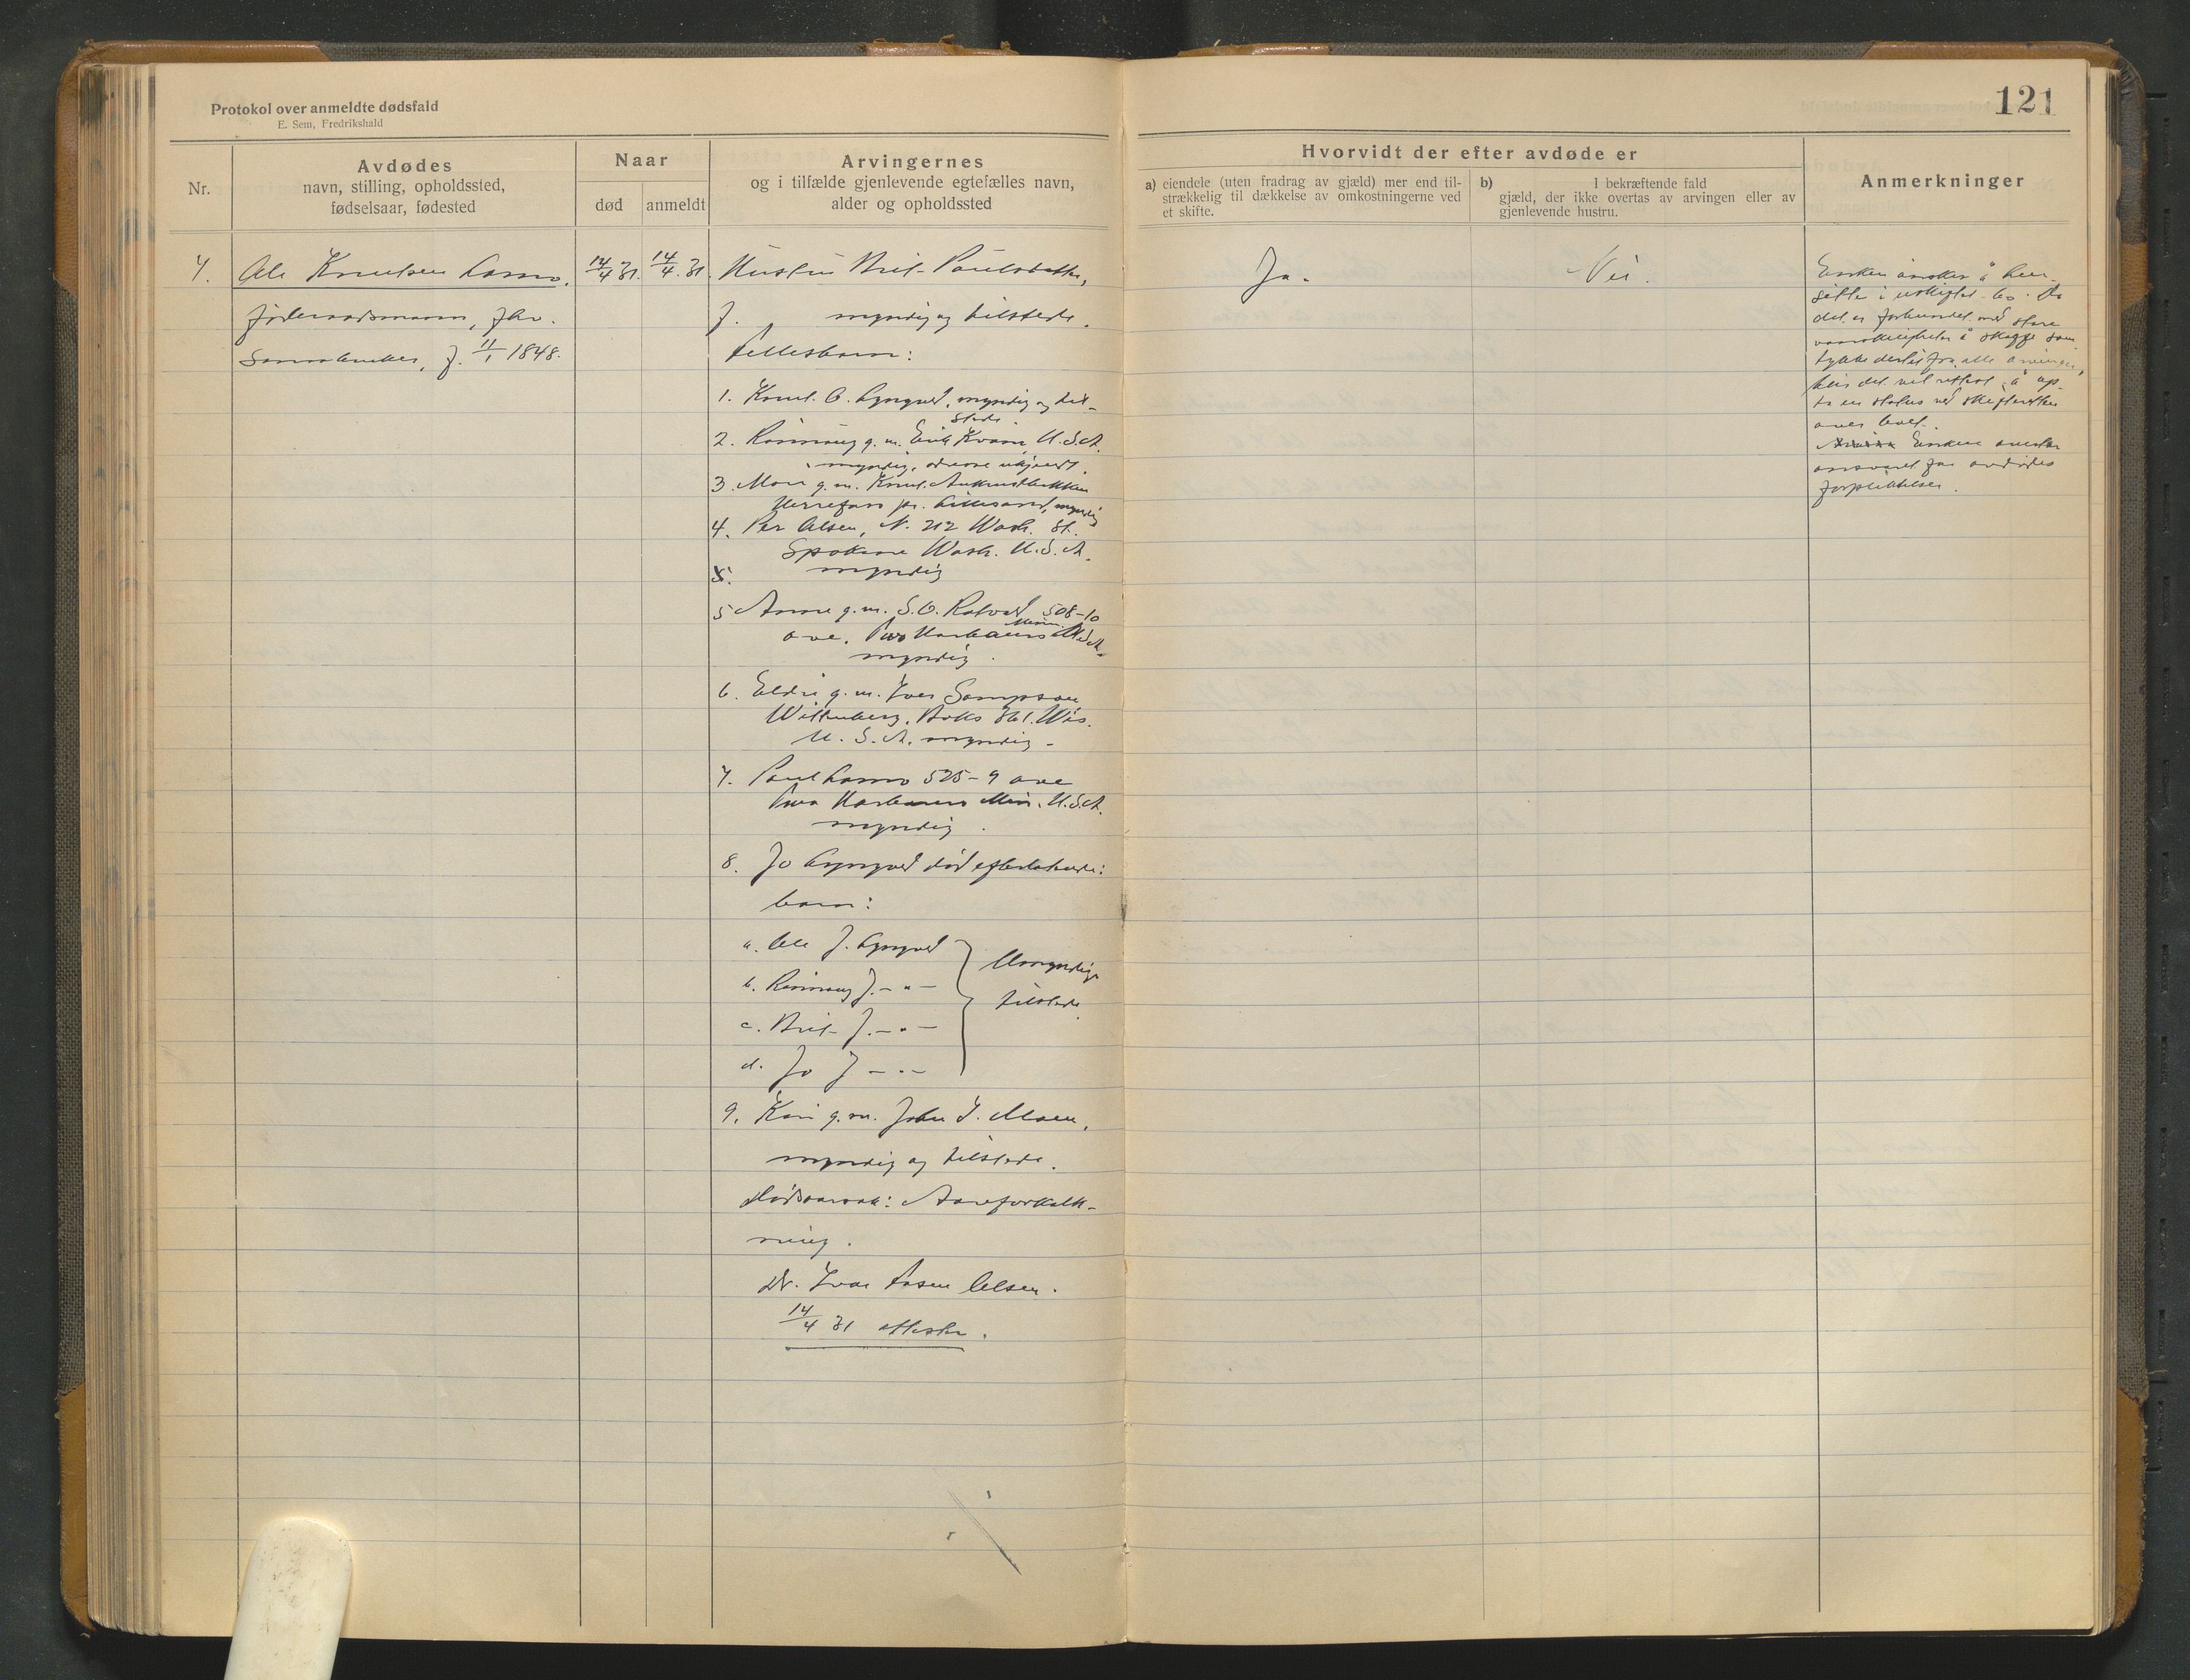 Protokol over anmeldte dødsfald
E. Sem, Fredrikshald
121
Nr.
Avdødes
navn, stilling, opholdssted,
fødselsaar, fødested
Naar
død
anmeldt
Arvingernes
og i tilfælde gjenlevende egtefælles navn,
alder og opholdssted
Hvorvidt der efter avdøde er
a) eiendele (uten fradrag av gjæld) mer end til-
strækkelig til dækkelse av omkostningerne ved
et skifte.
b) I bekræftende fald
gjæld, der ikke overtas av arvingen eller av
gjenlevende hustru.
Anmerkninger
7. Ole Knutsen
føderaadsmann, fhv.
f. 11/1 1848.
14/4 31.
14/4. 31.
Hustru Brit Paulsdatter,
f. myndig og tilstede.
Fellesbarn:
1. Knut O. Lyngved, myndig og til-
stede.
2. Rönnaug g. m. Erik Kvam, U.S.A.
myndig, adresse ukjendt.
3. Mari g. m. Knut
Herrefoss pr. Lillesand, myndig
4. Per Olsen, N. 212 Wash. St.
Spokane Wash. U.S.A.
myndig
5 Anne g. m. S. O. 508-10
ave. Two Harbours Minn. U.S.A.
myndig.
6. Eldri g. m. Iver Sampson
Wittenberg, Boks 361. Wis.
U. S. A. myndig -
7. Paul 525-9 ave
Two Harbours Min. U.S.A.
myndig.
8. Jo Lyngved død efterlatende:
barn:
a. Ole J. Lyngved
b. Rönnaug J. - " -
c. Brit J. - " -
d. Jo J - " -
Umyndige
tilstede.
9. Kari g. m. John I. Moen,
myndig og tilstede.
Dødsaarsak: Aareforkalk-
ning.
Dr. Ivar Aasen Olsen.
14/4 31 attester.
Ja.
Nei.
Enken ønsker å hen-
sitte i uskiftet bo. Da
det er forbundet med store
vanskeligheter å skaffe sam-
tykke dertil fra alle arvinger,
blir det vel rettest å op-
ta en status ved skifteretten
over boet.
Enken overtar
ansvaret for avdødes
forpliktelser.